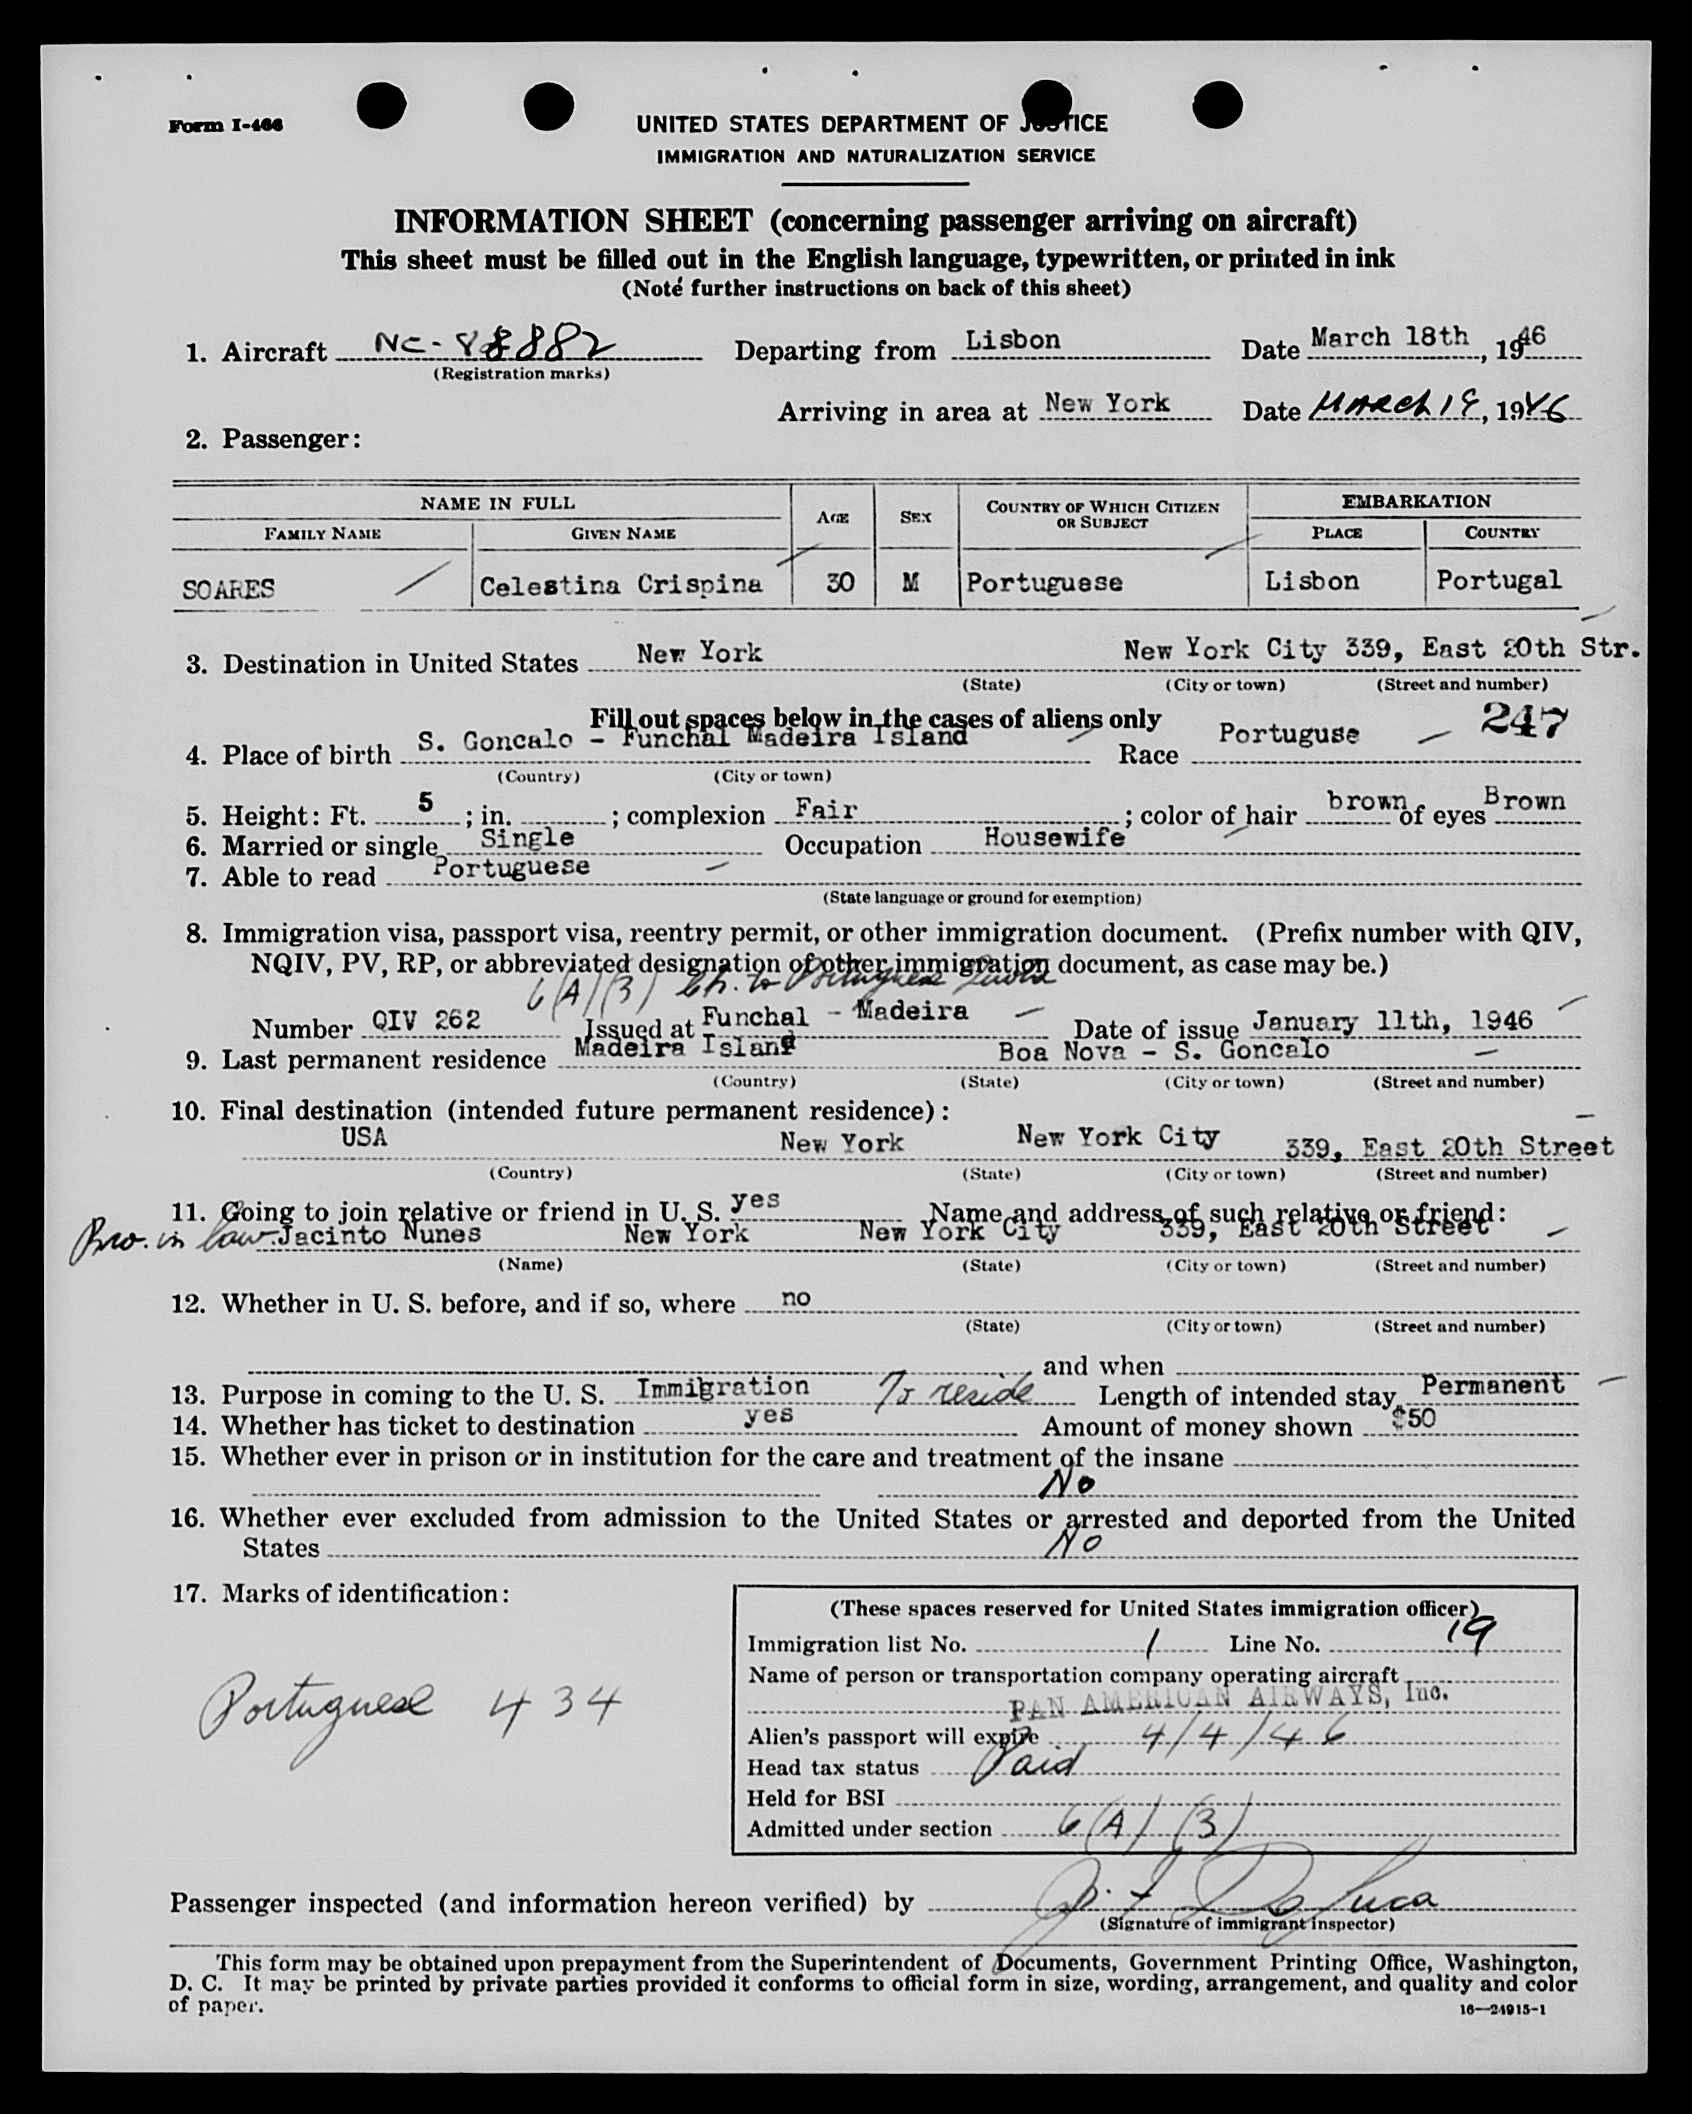 Form I-466
UNITED STATES DEPARTMENT OF JUSTICE
IMMIGRATION AND NATURALIZATION SERVICE
INFORMATION SHEET (concerning passenger arriving on aircraft)
This sheet must be filled out in the English language, typewritten, or printed in ink
(Note further instructions on back of this sheet)
1. Aircraft NC-88882 Departing from Lisbon Date March 18th, 1946
(Registration marks)
Arriving in area at New York Date MARCH 18, 1946
2. Passenger:
NAME IN FULL AGE SEX COUNTRY OF WHICH CITIZEN OR SUBJECT EMBARKATION
FAMILY NAME GIVEN NAME PLACE COUNTRY
SOARES Celestina Crispina 30 M Portuguese Lisbon Portugal
3. Destination in United States New York New York City 339, East 20th Str.
(State) (City or town) (Street and number)
Fill out spaces below in the cases of aliens only 247
4. Place of birth S. Goncalo - Funchal Madeira Island Race Portuguse
(Country) (City or town)
5. Height: Ft. 5 ; in. ; complexion Fair ; color of hair brown of eyes Brown
6. Married or single Single Occupation Housewife
7. Able to read Portuguese
(State language or ground for exemption)
8. Immigration visa, passport visa, reentry permit, or other immigration document. (Prefix number with QIV,
NQIV, PV, RP, or abbreviated designation of other immigration document, as case may be.)
6(A)(3) Ch. to Portuguese Quota
Number QIV 262 Issued at Funchal - Madeira Date of issue January 11th, 1946
9. Last permanent residence Madeira Island Boa Nova - S. Goncalo
(Country) (State) (City or town) (Street and number)
10. Final destination (intended future permanent residence):
USA New York New York City 339, East 20th Street
(Country) (State) (City or town) (Street and number)
11. Going to join relative or friend in U. S. yes Name and address of such relative or friend:
Bro. in law Jacinto Nunes New York New York City 339, East 20th Street
(Name) (State) (City or town) (Street and number)
12. Whether in U. S. before, and if so, where no
(State) (City or town) (Street and number)
and when
13. Purpose in coming to the U. S. Immigration To reside Length of intended stay Permanent
14. Whether has ticket to destination yes Amount of money shown $50
15. Whether ever in prison or in institution for the care and treatment of the insane
No
16. Whether ever excluded from admission to the United States or arrested and deported from the United
States No
17. Marks of identification:
(These spaces reserved for United States immigration officer)
Immigration list No. 1 Line No. 19
Name of person or transportation company operating aircraft
PAN AMERICAN AIRWAYS, Inc.
Portuguese 434
Alien's passport will expire 4/4/46
Head tax status Paid
Held for BSI
Admitted under section 6(A)(3)
Passenger inspected (and information hereon verified) by
(Signature of immigrant inspector)
This form may be obtained upon prepayment from the Superintendent of Documents, Government Printing Office, Washington,
D. C. It may be printed by private parties provided it conforms to official form in size, wording, arrangement, and quality and color
of paper.
16—24915-1